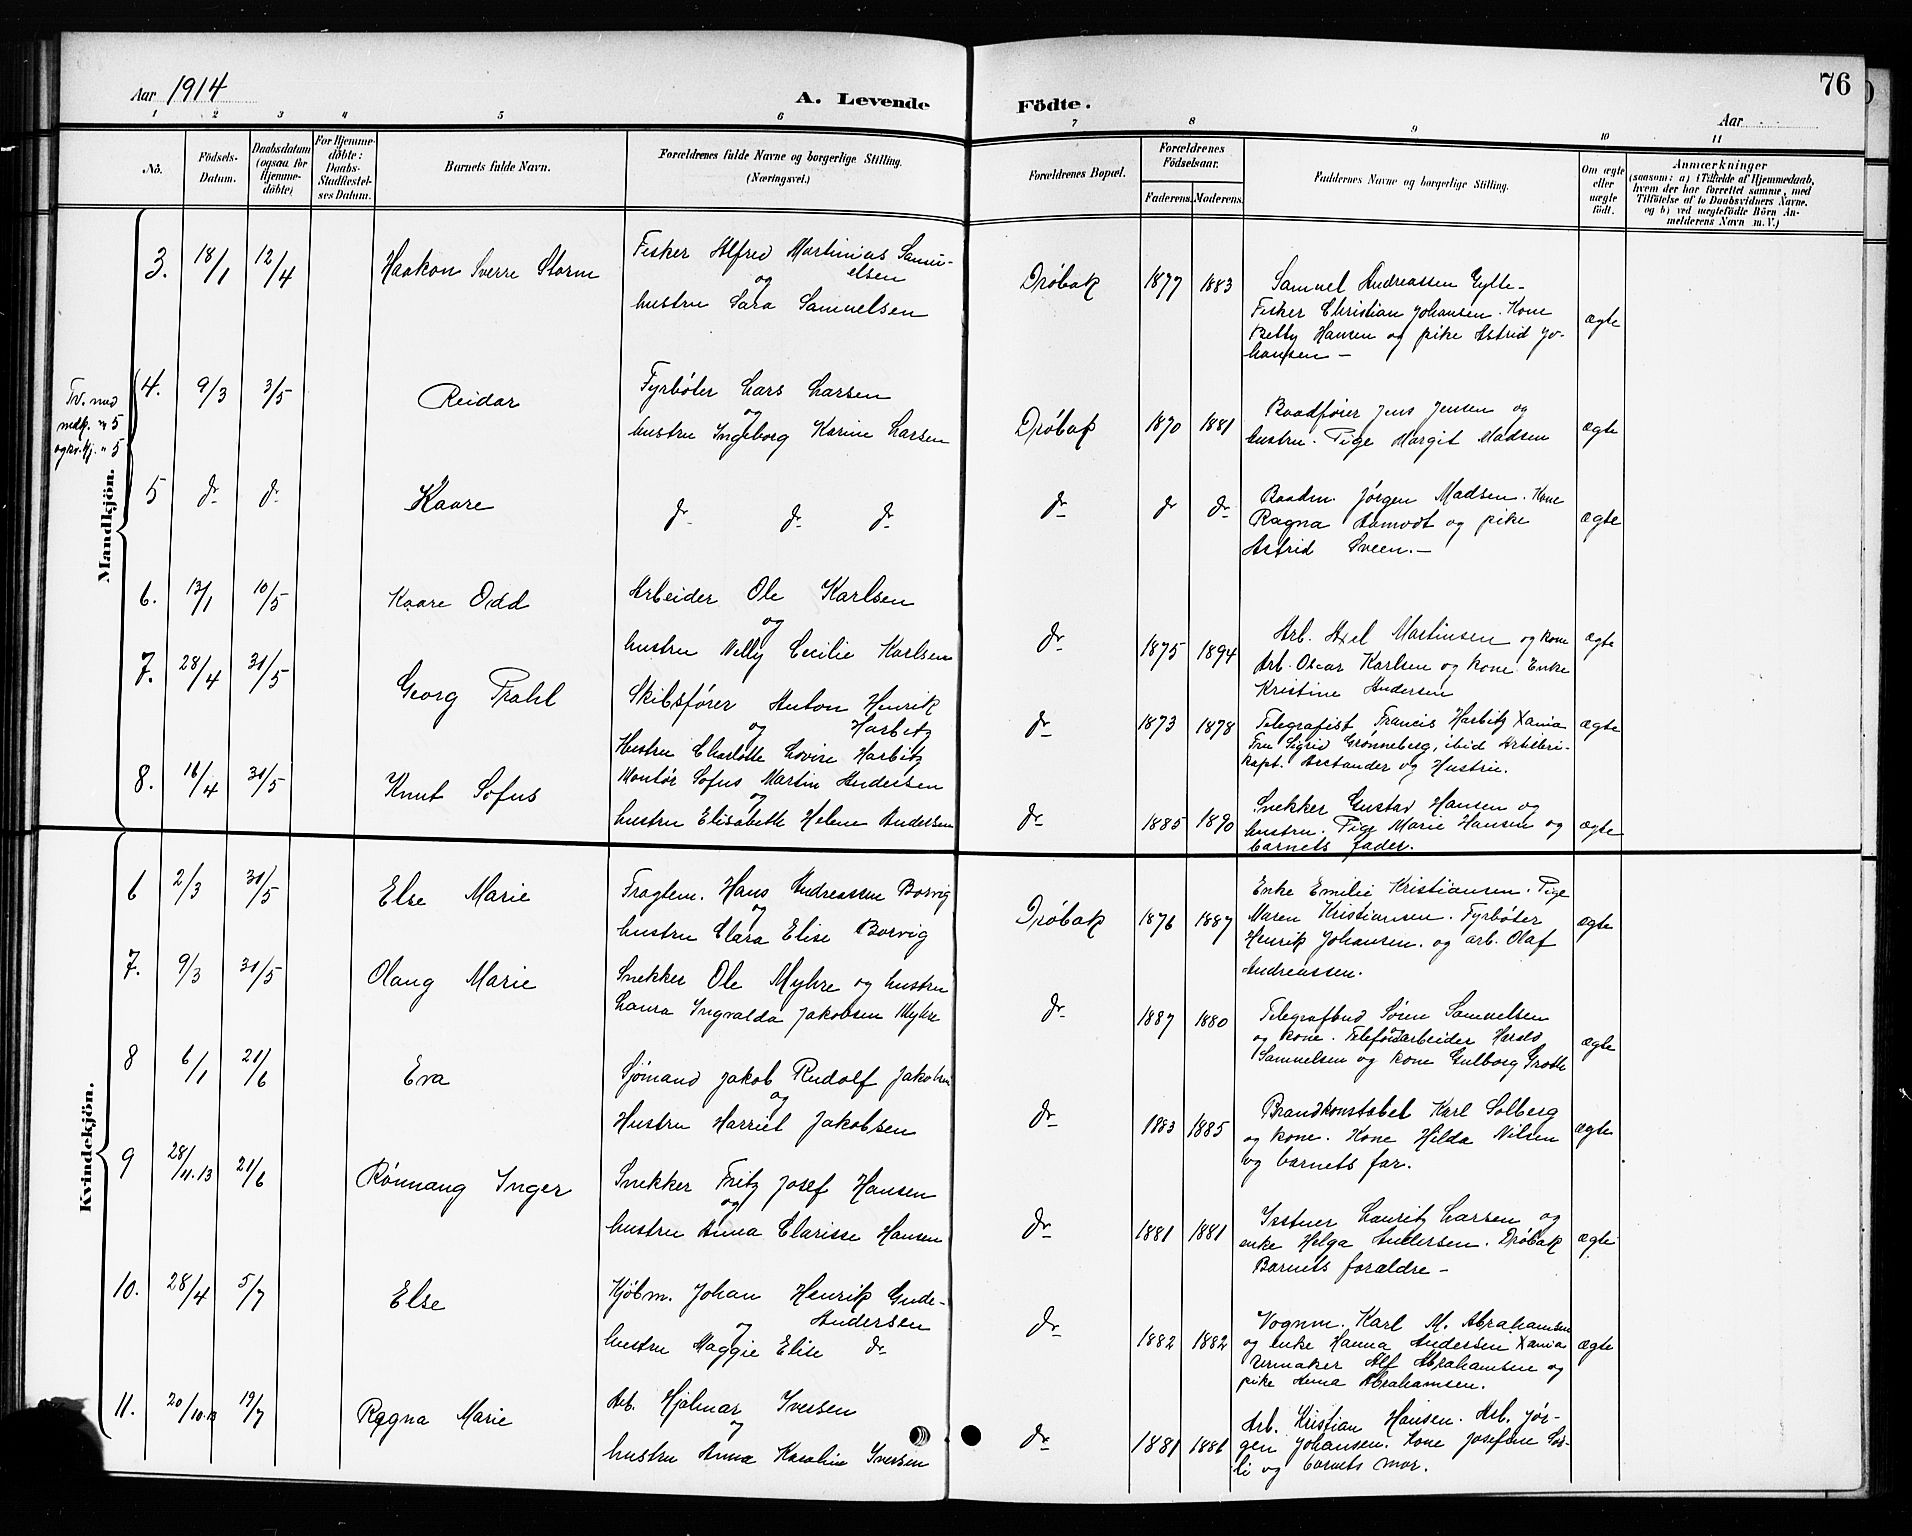 76
Aar 1914
A. Levende Födte.
Aar
1 2 3 4 5 6 7 8 9 10 11
No.
Födsels-
Datum.
Daabsdatum
(ogsaa for
Hjemme-
döbte)
For Hjemme-
döbte:
Daabs-
Stadfæstel-
ses Datum.
Barnets fulde Navn.
Forældrenes fulde Navne og borgerlige Stilling.
(Næringsvei.)
Forældrenes Bopæl.
Forældrenes
Födselsaar.
Faderens. Moderens.
Faddernes Navne og borgerlige Stilling.
Om ægte
eller
uægte
födt.
Anmærkninger
(saasom: a) i Tilfælde af Hjemmedaab,
hvem der har forrettet samme, med
Tilföielse af to Daabsvidners Navne,
og b) ved uægtefödte Börn An-
melderens Navn m. V.)
Mandkjön.
3. 18/1 12/4 Haakon Sverre Storm
Fisker Alfred Martinias Samu-
og elsen
hustru Sara Samuelsen
Drøbak 1877 1883
Samuel Andreassen Gylte-
Fisker Christian Johansen. Kone
Betty Hansen og pike Astrid Jo-
hansen —
ægte
Tv. med
mdkj. № 5
og kv.kj. № 5
4. 9/3 3/5 Reidar
Fyrbøter Lars Larsen
og
hustru Ingeborg Karine Larsen
Drøbak 1870 1881
Baadfører Jens Jensen og
hustru. Pige Margit Madsen
ægte
5 do do Kaare
do do do
do do do
Baadm. Jørgen Madsen. Kone
Ragna Aamodt og pike
Astrid Sveen. —
ægte
6. 13/1 10/5 Kaare Odd
Arbeider Ole Karlsen
og
hustru Nelly Cecilie Karlsen
do 1875 1894
Arb. Axel Martinsen og kone
Arb. Oscar Karlsen og kone. Enke
Kristine Andersen
ægte
7. 28/4 31/5 Georg Prahl
Skibsfører Anton Henrik
og Harbitz
Hustru Charlotte Lovise Harbitz
do 1873 1878
Telegrafist Francis Harbitz Xania
Fru Sigrid Grønneberg, ibid Artilleri-
kapt. Arstander og Hustru.
ægte
8. 16/4 31/5 Knut Sofus
Montør Sofus Martin Andersen
og
hustru Elisabeth Helene Andersen
do 1885 1890
Snekker Gustav Hansen og
hustru. Pige Marie Hansen og
barnets fader.
ægte
Kvindekjön.
6 2/3 31/5 Else Marie
Fragtem. Hans Andreassen Borvig
og
hustru Clara Elise Borvig
Drøbak 1876 1887
Enke Emilie Kristiansen. Pige
Maren Kristiansen. Fyrbøter
Henrik Johansen. og arb. Olaf
Andreassen.
ægte
7. 9/3 31/5 Olaug Marie
Snekker Ole Myhre og hustru
Laura Ingvalda Jakobsen Myhre
do 1887 1880
Telegrafbud Søren Samuelsen
og kone. Telefonarbeider Harald
Samuelsen og kone Gulborg Grothe
ægte
8 6/1 21/6 Eva
Sjømand Jakob Rudolf Jakobsen
og
Hustru Harriet Jakobsen
do 1883 1885
Brandkonstabel Karl Solberg
og kone. Kone Hilda Nilsen
og barnets far.
ægte
9 28/11.13 21/6 Rønnaug Inger
Snekker Fritz Josef Hansen
og
hustru Anna Clarisse Hansen
do 1881 1881
Isstuer Lauritz Larsen og
enke Helga Andersen. Drøbak
Barnets foraldre —
ægte
10. 28/4 5/7 Else
Kjøbm. Johan Henrik Gude-
og Andersen
hustru Maggie Elise do
do 1882 1882
Vognm. Karl M. Abrahamsen
og enke Hanna Andersen Xania
Urmaker Alf Abrahamsen og
pike Anna Abrahamsen.
ægte
11. 20/10.13 19/7 Ragna Marie
Arb. Hjalmar Iversen
og
hustru Anna Karoline Iversen
do 1881 1886
Arb. Kristian Hansen. Arb. Jør-
gen Johansen. Kone Josefine Sor-
li og barnets mor.
ægte